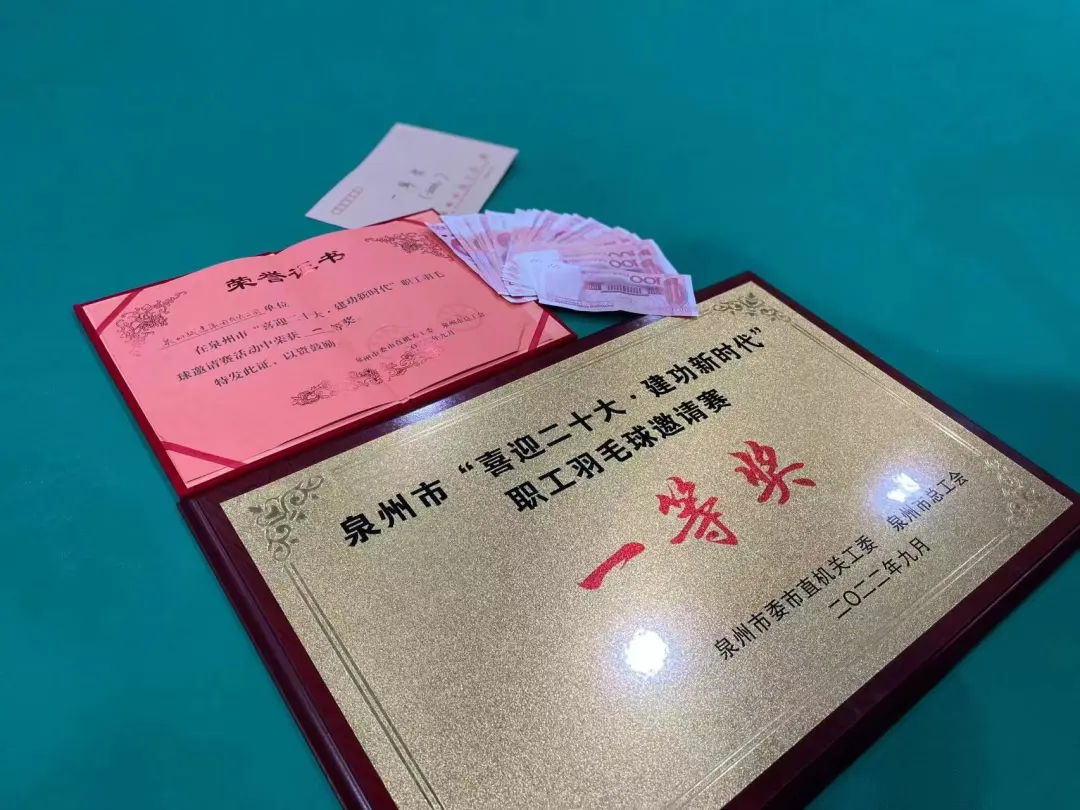 一等奖
荣誉证书
单位
在泉州市“喜迎二十大·建功新时代”职工羽毛
球邀请赛活动中荣获一等奖
特发此证、以资鼓励
泉州市委市直机关工委 泉州市总工会
100
100
泉州市“喜迎二十大·建功新时代”
职工羽毛球邀请赛
一等奖
泉州市委市直机关工委 泉州市总工会
二〇二二年九月